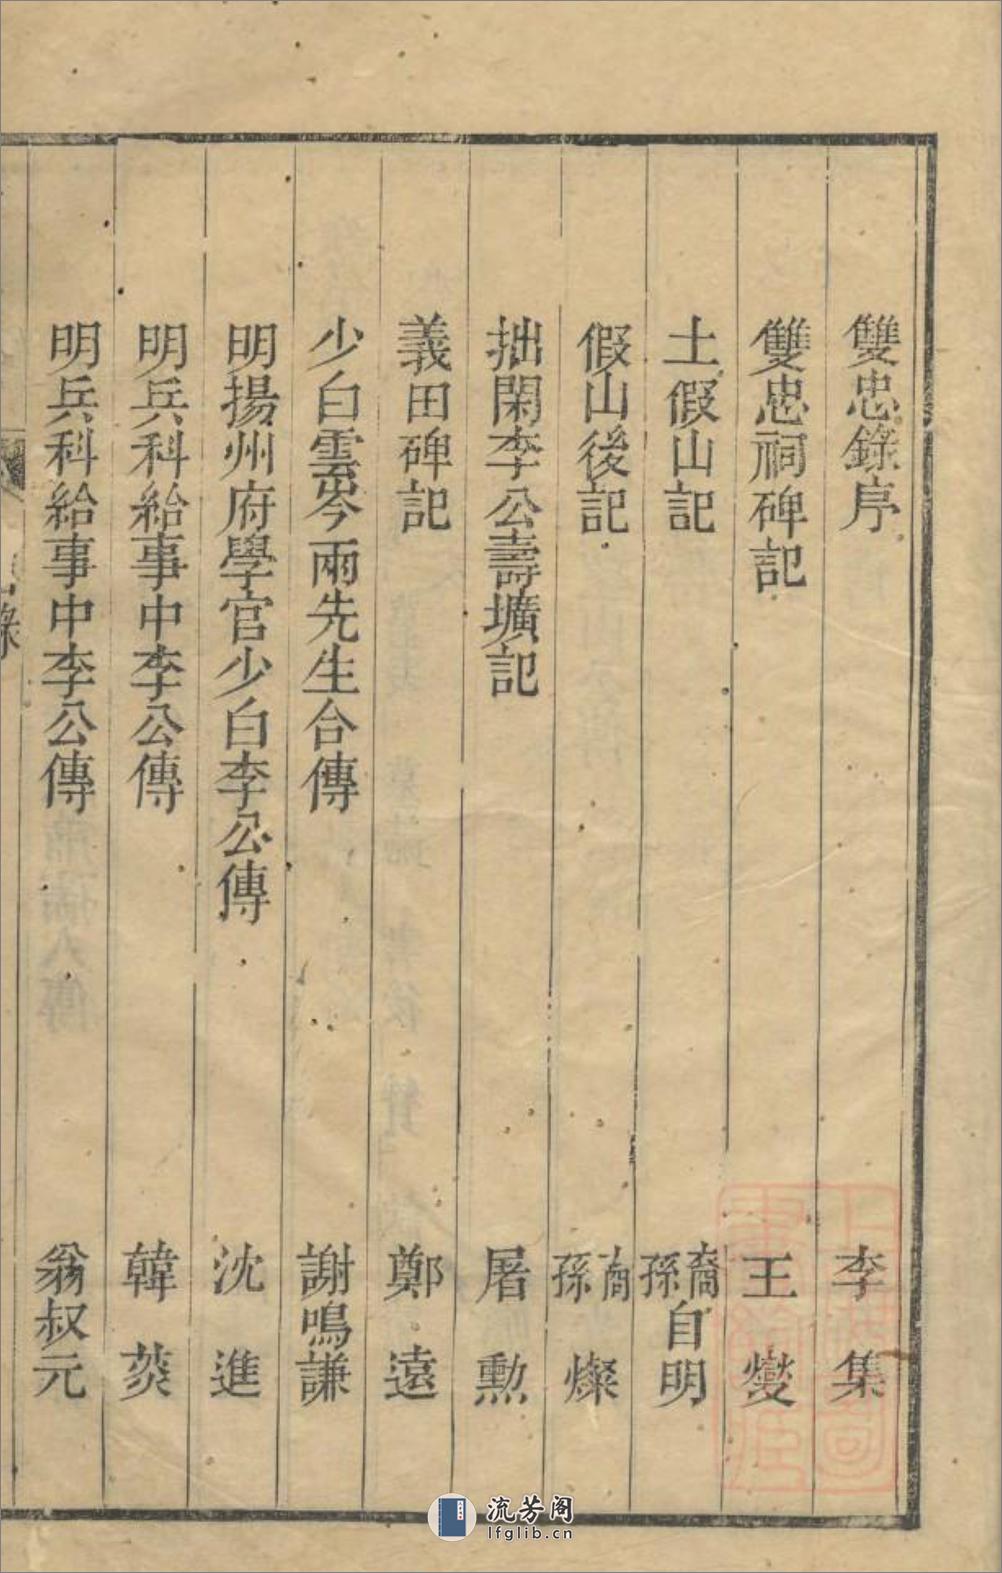 雙忠錄序 李集
雙忠祠碑記 王燮
土假山記 裔孫自明
假山後記 裔孫燦
拙閑李公壽壙記 屠勳
義田碑記 鄭遠
少白雲岑兩先生合傳 謝鳴謙
明揚州府學官少白李公傳 沈進
明兵科給事中李公傳 韓菼
明兵科給事中李公傳 翁叔元
流芳阁
lfglib.cn